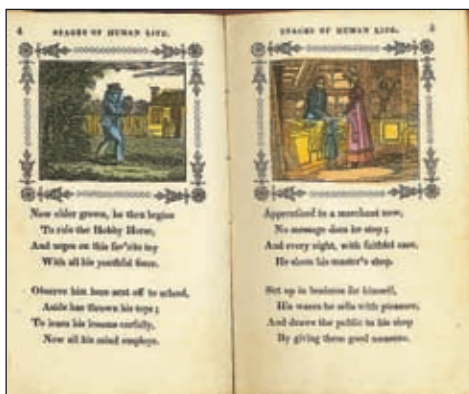 4 STAGES OF HUMAN LIFE.
Now older grown, he then begins
To ride the Hobby Horse,
And urges on this fav'rite toy
With all his youthful force.
Observe him here sent off to school,
Aside has thrown his toys;
To learn his lessons carefully,
Now all his mind employs.
STAGES OF HUMAN LIFE. 5
Apprenticed to a merchant now,
No message does he stop;
And every night, with faithful care,
He shuts his master's shop.
Set up in business for himself,
His wares he sells with pleasure,
And draws the public to his shop
By giving them good measure.